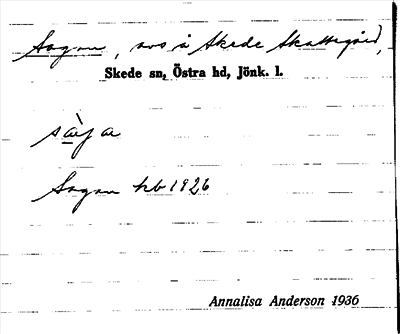 Sagen, avs å Skede Skattegård,
Skede sn, Östra hd, Jönk. l.
sàɡa
Sagen hb 1926
Annalisa Anderson 1936